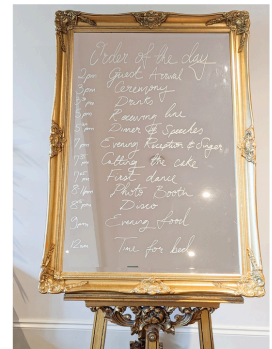 Order of the day
2pm Guest Arrival
3pm Ceremony
Drinks
Receiving line
5pm Dinner & Speeches
7pm Evening Reception & Singer
Cutting the cake
First dance
Photo Booth
8pm Disco
9pm Evening food
12am Time for bed